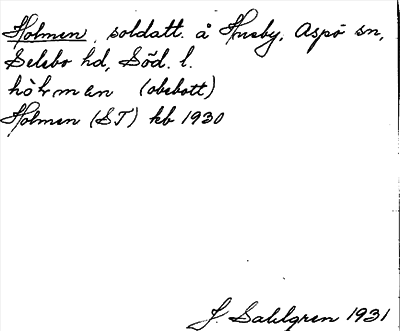 Holmen, soldatt. å Husby, Aspö sn,
Selebo hd, Söd. l.
hòḷmen (obebott)
Holmen (ST) kb 1930
J. Sahlgren 1931